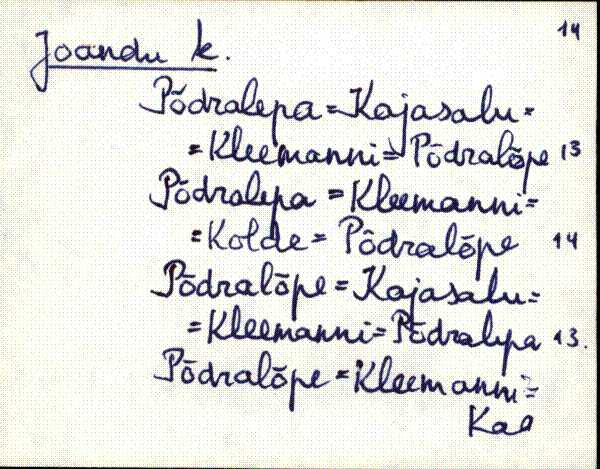 14
Joandu k.
Põdralepa = Kajasalu =
= Kleemanni = Põdralõpe 13
Põdralepa = Kleemanni =
= Kolde = Põdralõpe 14
Põdralõpe = Kajasalu =
= Kleemanni = Põdralepa 13.
Põdralõpe = Kleemanni =